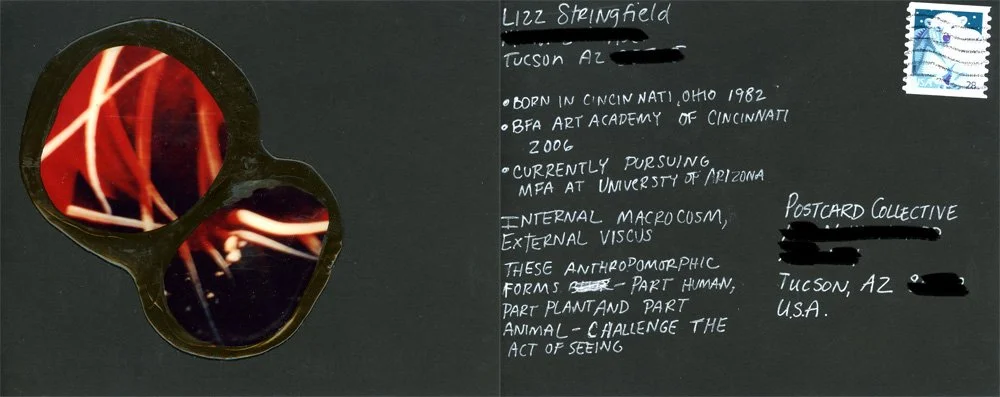 Lizz Stringfield
Tucson AZ
• BORN IN CINCINNATI, OHIO 1982
• BFA ART ACADEMY OF CINCINNATI
2006
• CURRENTLY PURSUING
MFA AT UNIVERSTY OF ARIZONA
INTERNAL MACROCOSM,
EXTERNAL VISCUS
THESE ANTHROPOMORPHIC
FORMS – PART HUMAN,
PART PLANT AND PART
ANIMAL – CHALLENGE THE
ACT OF SEEING
28
POSTCARD COLLECTIVE
TUCSON, AZ
U.S.A.